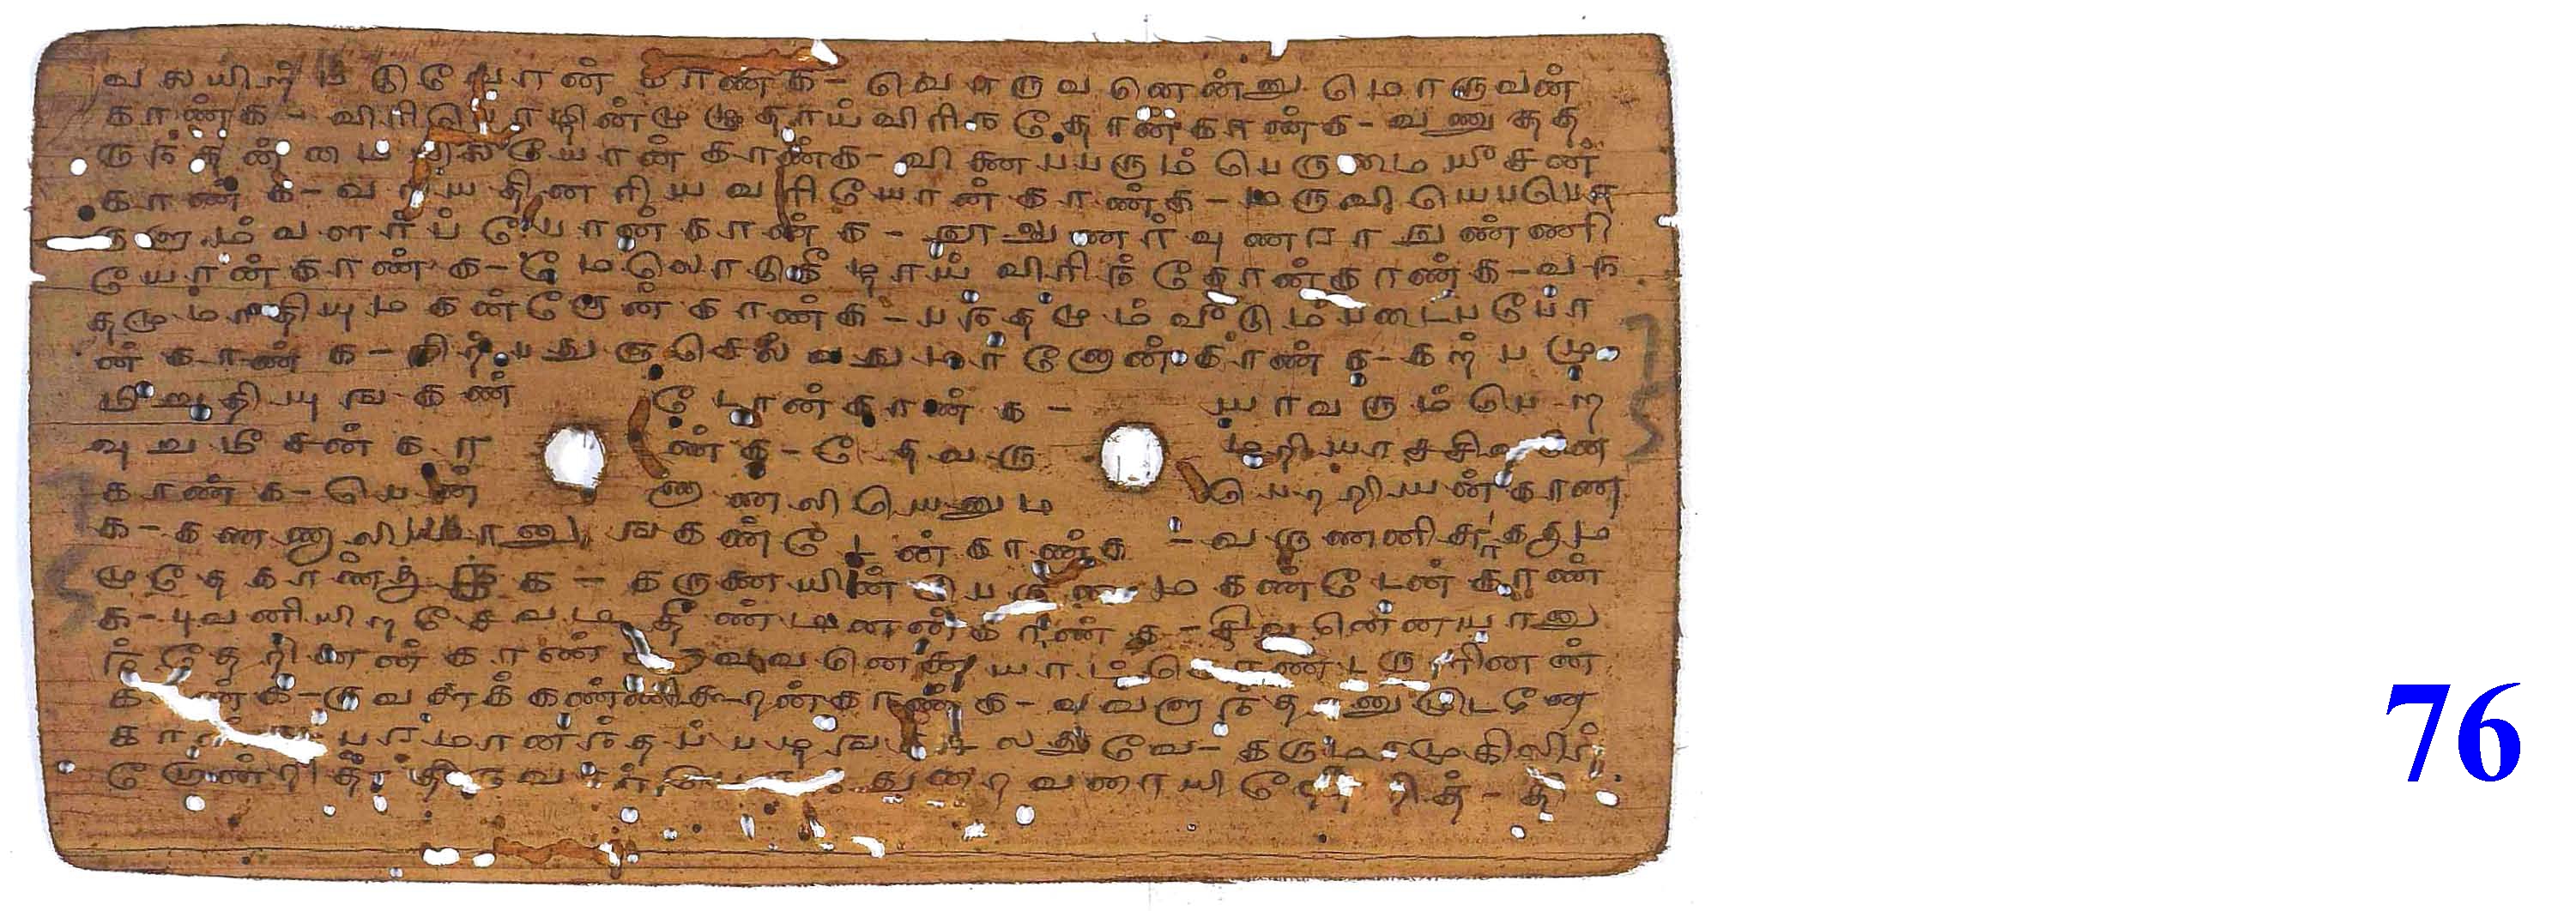 வலையிற் படுவோன் காண்க - வொருவனென்னு மொருவன்
காண்க - விரிபொழின்முழுதாய் விரிந தோன்காண்க - வணுதத
ருந்தன்மையிலையோன் காண்க - விணைபபரும் பெருமையீசன்
காண்க - வரியதினரிய வரியோன் காண்க - மருவி யெபபொரு
ளும் வளர்ப் போன் காண்க - நூலுணர்வுணரா நுண்ணி
யோன் காண்க - மேலொடுகீழாய் விரிந் தோன்காண்க - வந
தமுமாதியும கன்றோன் காண்க - பந்தமும் வீடும்படைபபோ
ன் காண்க - நிற்பதுஞசெல்வதுமா னோன்காண்க - கற்பமு
மிறுதியுஙகண் டோன்காண்க - யாவரும் பெற
வுவமீசன்கா ண்க - தேவரு மறியாசசிவனே
காண்க - பெண் ணாணலியெனும பெறறியன்காண
க - கணணாலியானுஙகண்டேன்காண்க - வருணனிசுரகதும
முதேகாண்க - கருணையின் பெருமைம கண்டேன் காண்
க - புவனியிறசேவடி தீண்டினன்காண்க - சிவனென்னயானு
ந் தேறினன் காண்க வவனென்னையாட்கொண்டருளினன்
காண்க - குவளைக்கண்ணிகூறன்காண்க - வவளுந்தானுமுடனே
காண்க பரமானந்தப் பழஙகடலதுவே - கருமாமுகிலிற்
றோன்றித் திருவார் பெருந்துறைவரையிலேறித் - தி